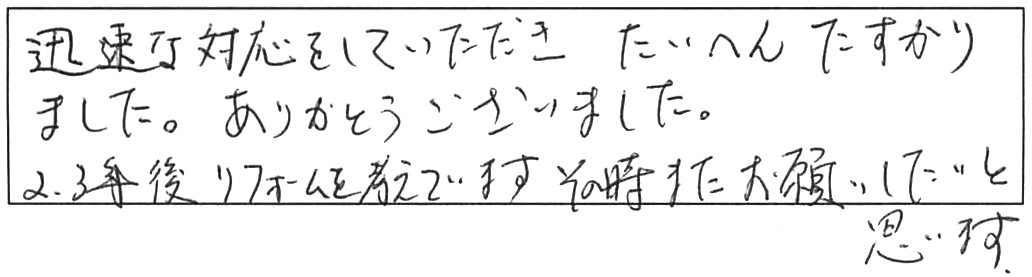 迅速な対応をしていただき たいへん たすかり
ました。ありがとうございました。
2.3年後 リフォームを考えています その時またお願いしたいと
思います.